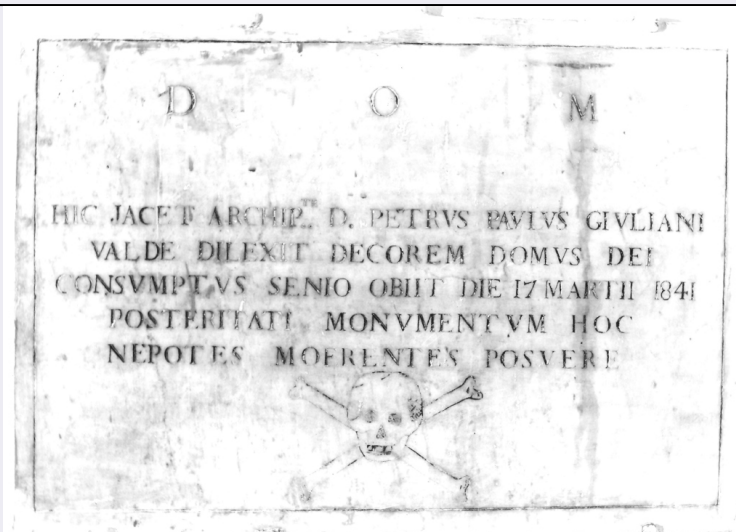 D O M
HIC JACET ARCHIP.TR D. PETRVS PAVLVS GIVLIANI
VALDE DILEXIT DECOREM DOMVS DEI
CONSVMPTVS SENIO OBIIT DIE 17 MARTII 1841
POSTERITATI MONVMENTVM HOC
NEPOTES MOERENTES POSVERE